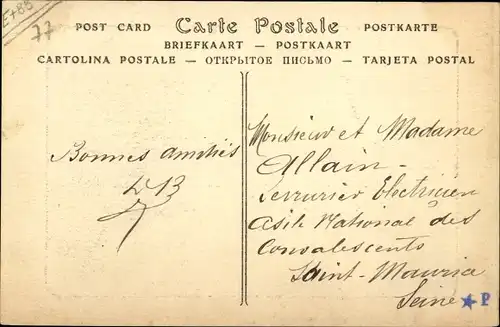 E785
77
POST CARD Carte Postale POSTKARTE
BRIEFKAART — POSTKAART
CARTOLINA POSTALE — ОТКРЫТОЕ ПИСЬМО — TARJETA POSTAL
Bonnes amitiés
Monsieur et Madame
Allain -
Serrurier Electricien
Asile National des
Convalescents
Saint-Maurice
Seine
P